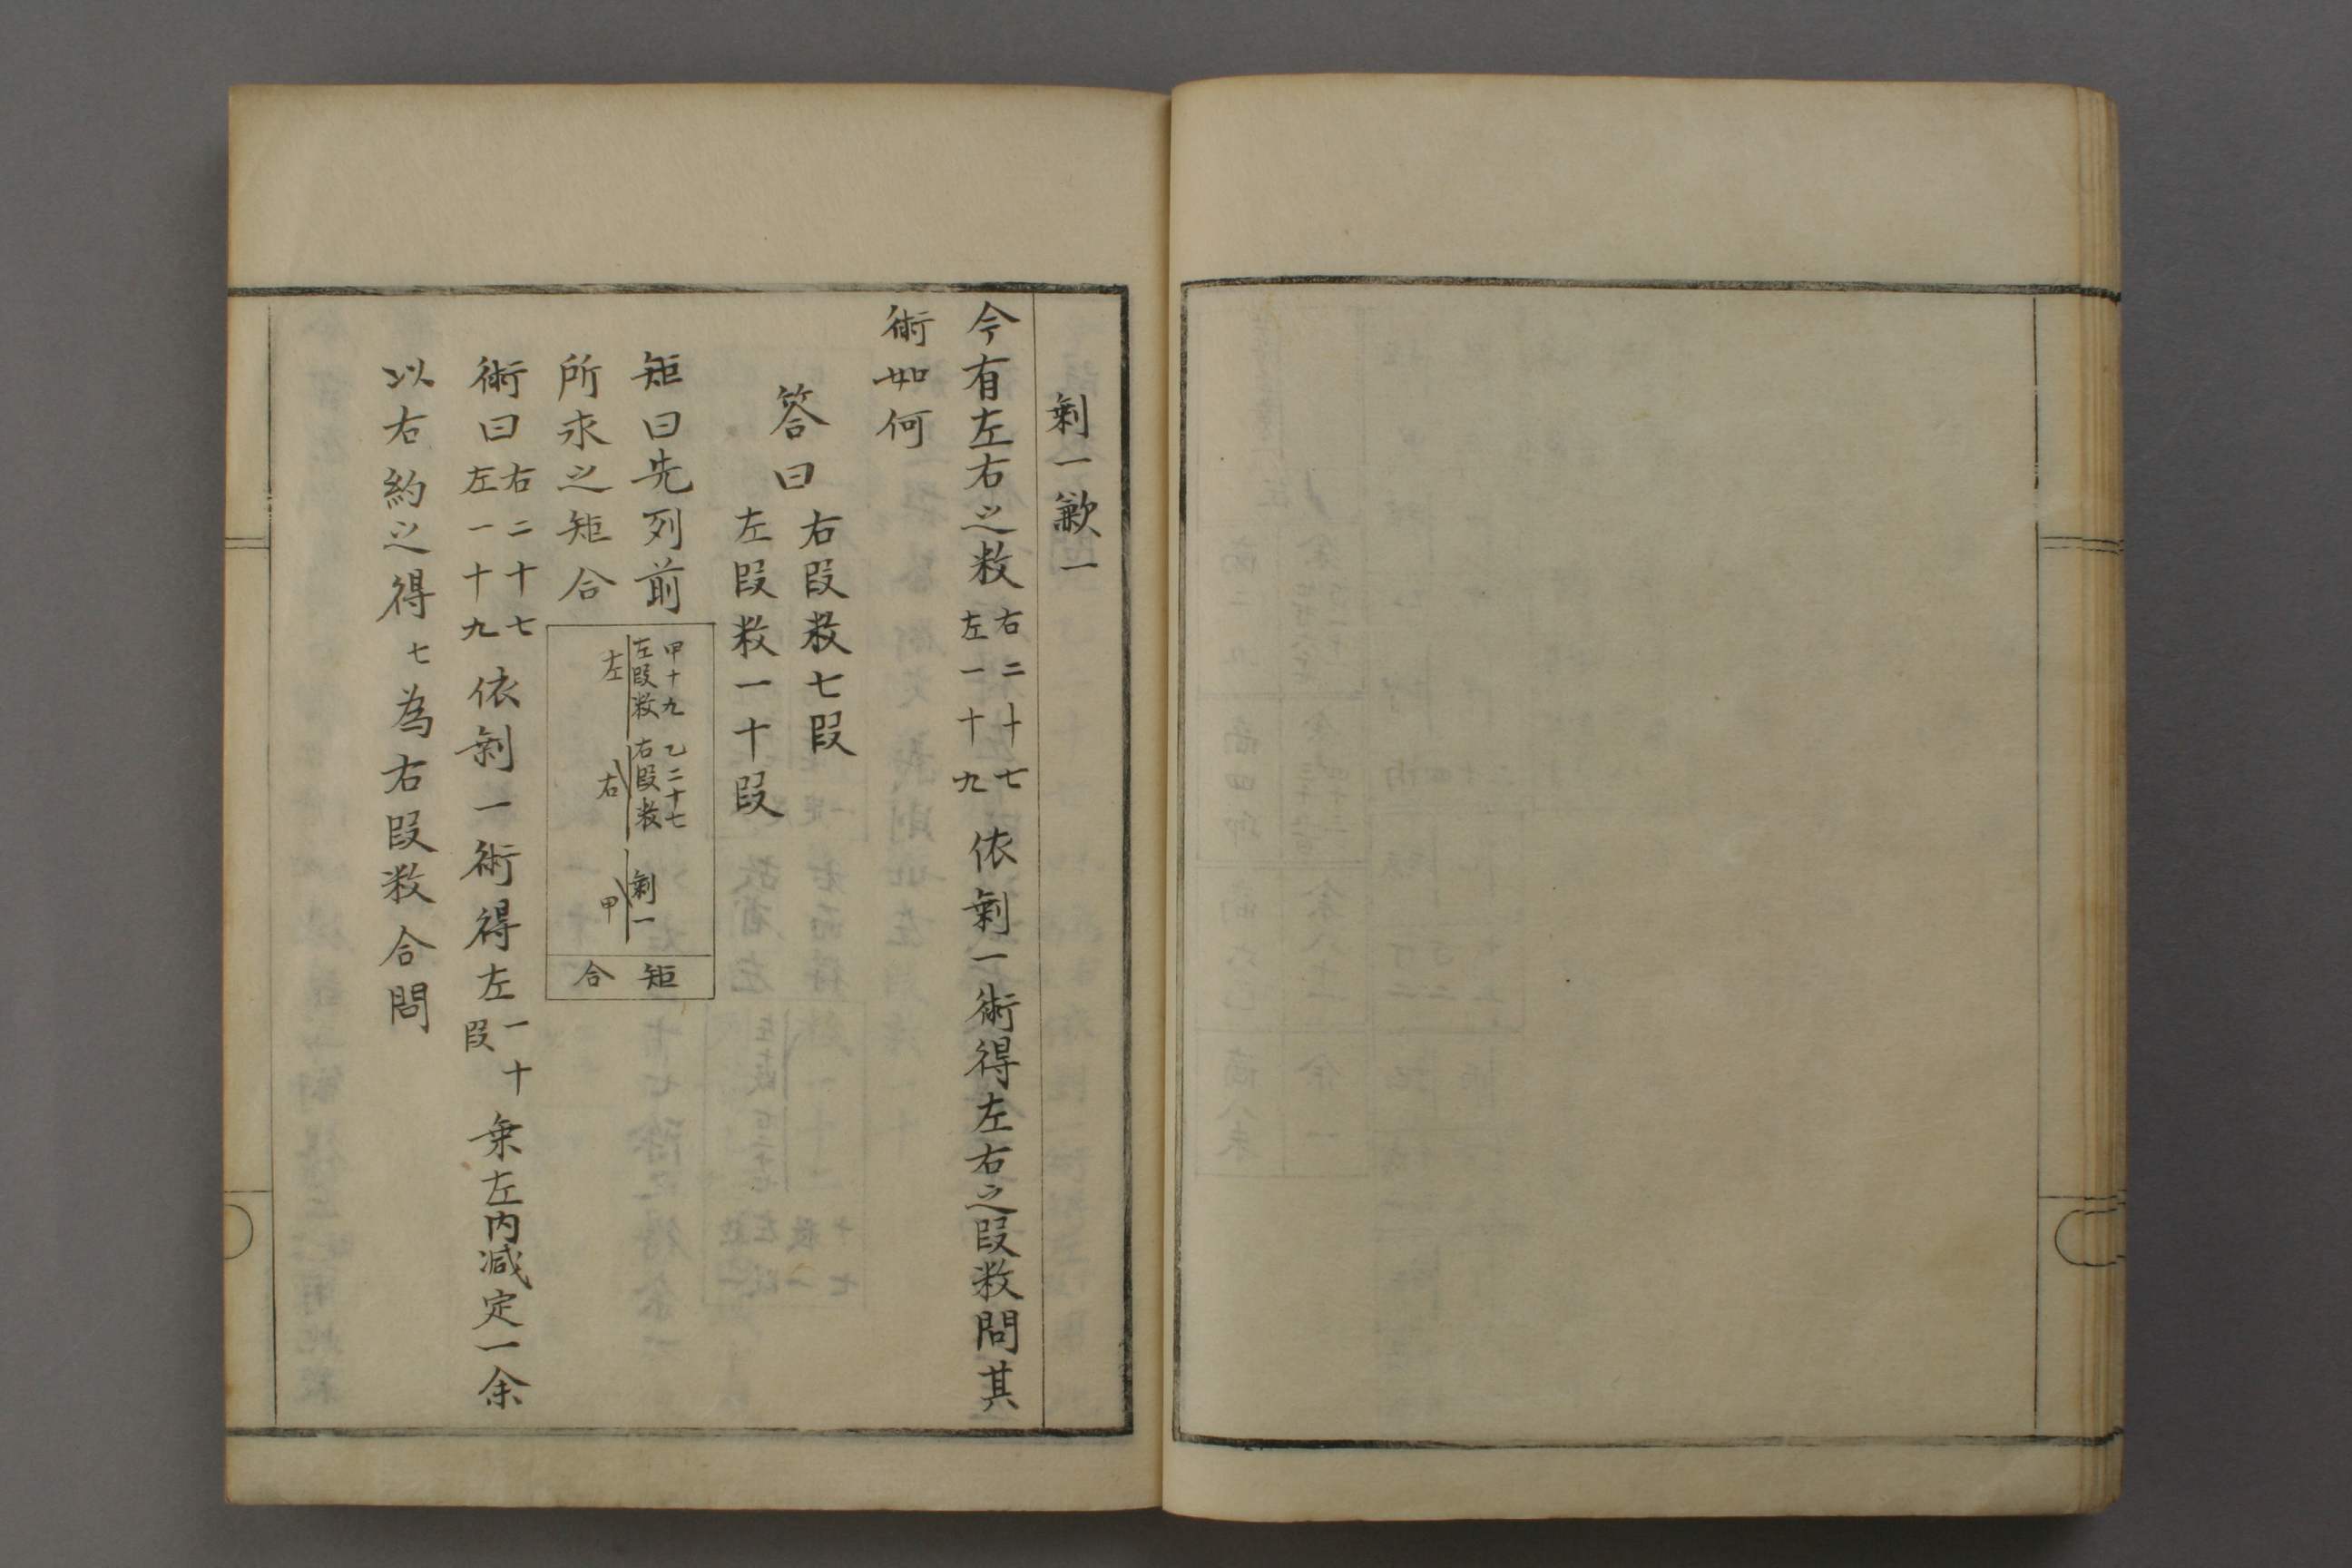 剰一歉一
今有左右之数右二十七左一十九依剰一術得左右之段数問其
術如何
答曰右段数七段
左段数一十段
矩曰先列前
所求之矩合
甲十九 乙二十七
左段数 右段数 剰一
左 右 甲
矩合
術曰右二十七左一十九依剰一術得左一十段乗左内減定一余
以右約之得七為右段数合問